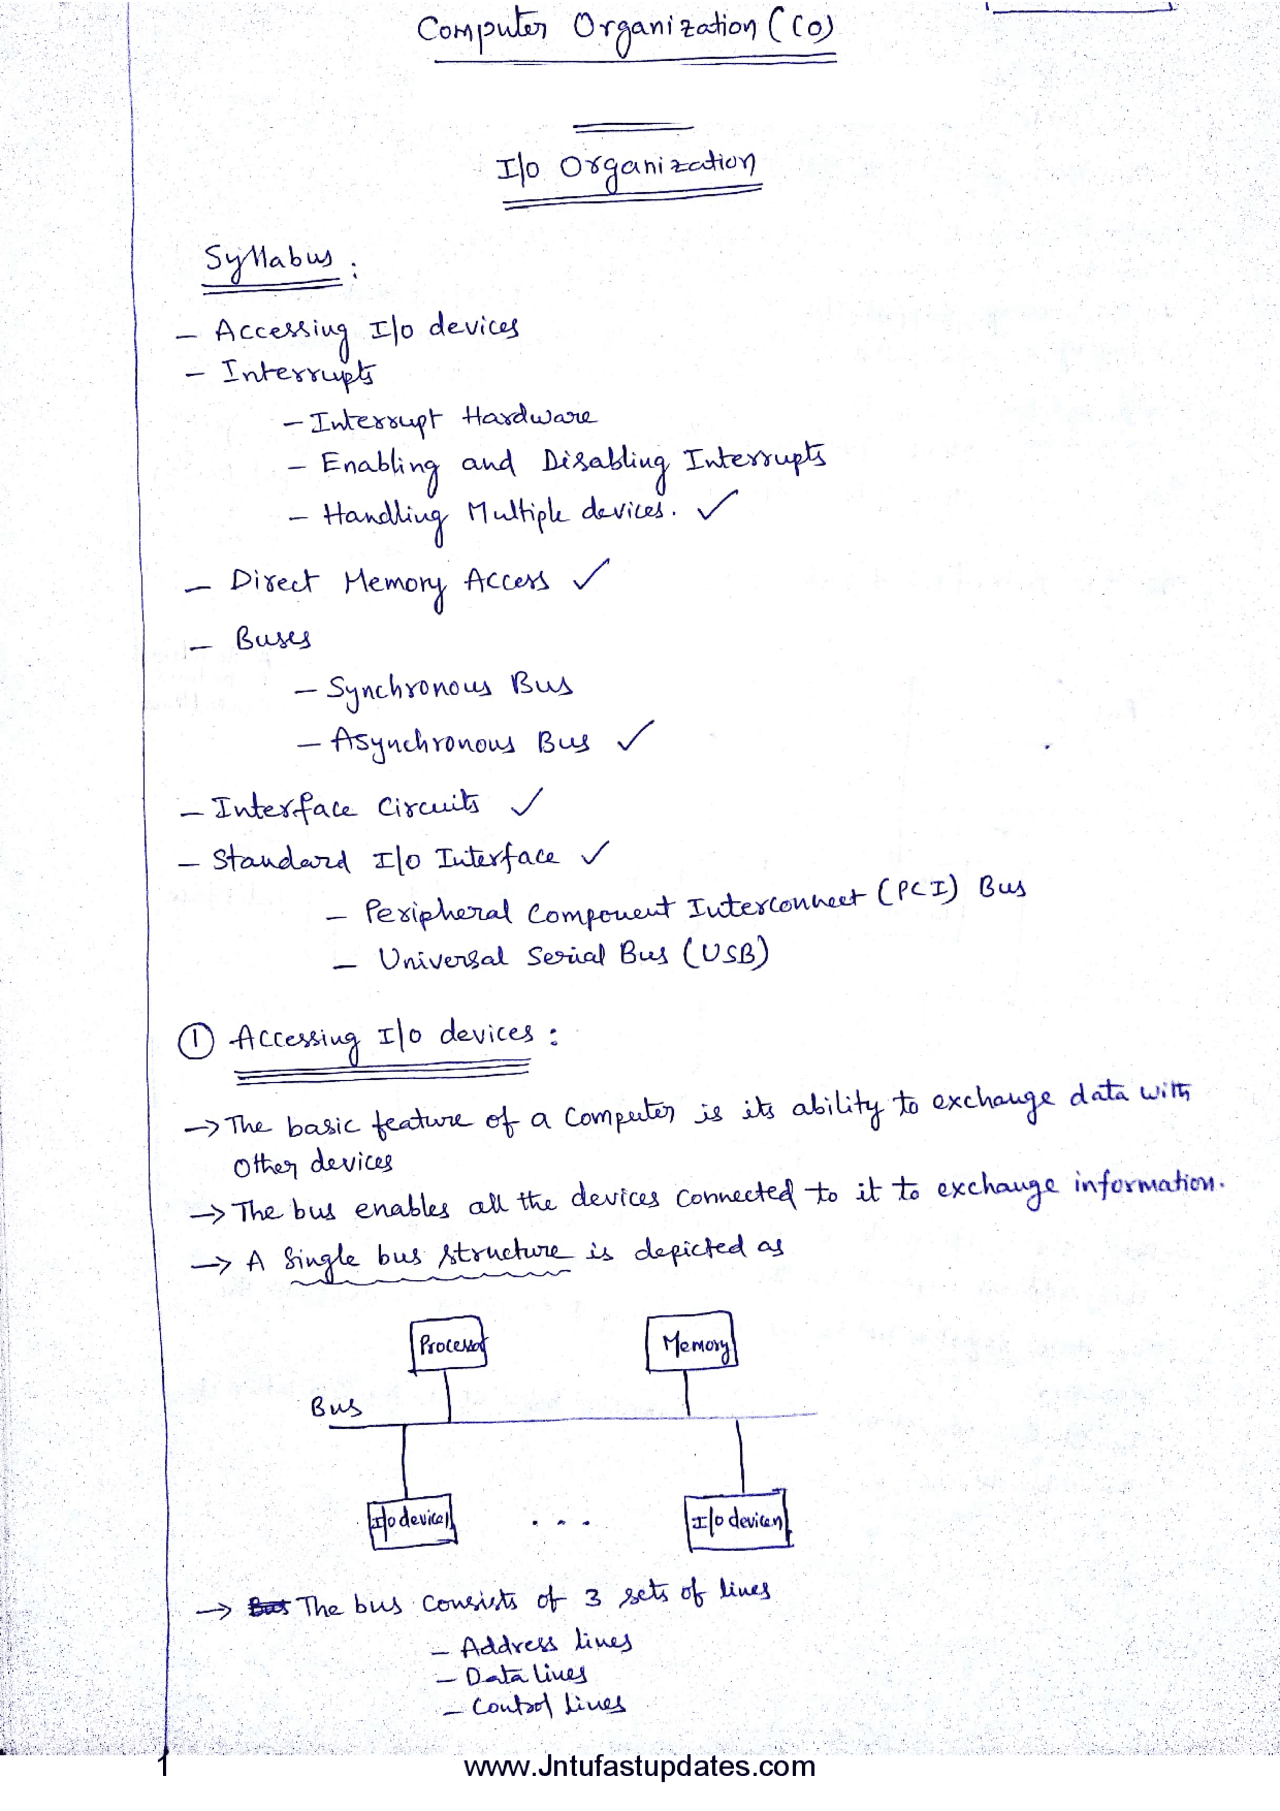 Computer Organization (CO)
I/o Organization
Syllabus :
- Accessing I/o devices
- Interrupts
- Interrupt Hardware
- Enabling and Disabling Interrupts
- Handling Multiple devices. ✓
- Direct Memory Access ✓
- Buses
- Synchronous Bus
- Asynchronous Bus ✓
- Interface Circuits ✓
- Standard I/o Interface ✓
- Peripheral Component Interconnect (PCI) Bus
- Universal Serial Bus (USB)
① Accessing I/o devices :
→ The basic feature of a computer is its ability to exchange data with
other devices
→ The bus enables all the devices connected to it to exchange information.
→ A single bus structure is depicted as
Processor Memory
Bus
I/o device1 ... I/o device n
→ The bus consists of 3 sets of lines
- Address lines
- Data lines
- Control lines
1 www.Jntufastupdates.com